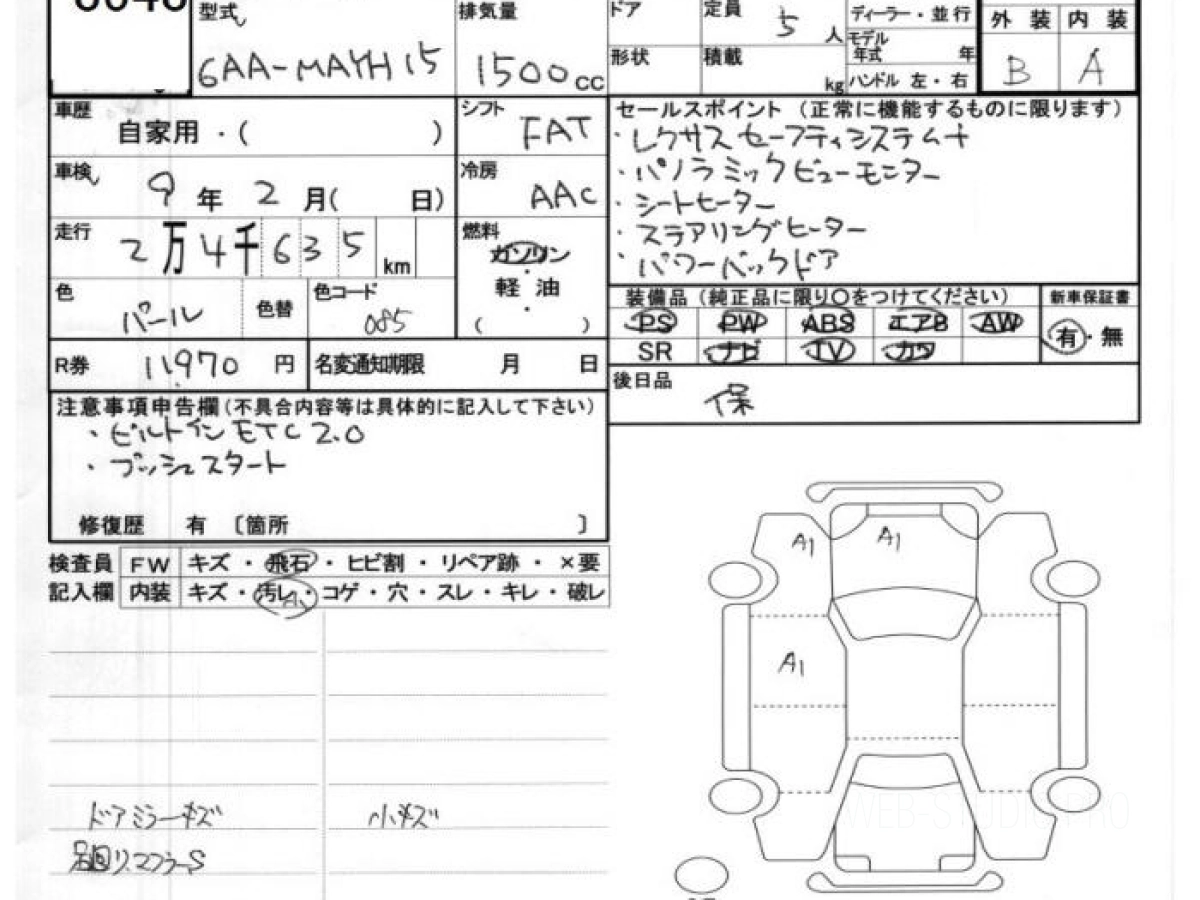 型式
6AA-MAYH15
排気量
1500 cc
ドア
定員
5 人
形状
積載
kg
ディーラー・並行
モデル年式 年
ハンドル 左・右
外装 内装
B A
車歴
自家用・( )
シフト
FAT
車検
9 年 2 月( 日)
冷房
AAC
走行
2万4千635 km
燃料
ガソリン
・
軽油
・
( )
色
パール
色替
色コード
085
R券 11,970 円
名変通知期限 月 日
セールスポイント (正常に機能するものに限ります)
・レクサスセーフティシステム+
・パノラミックビューモニター
・シートヒーター
・ステアリングヒーター
・パワーバックドア
装備品 (純正品に限り○をつけてください) 新車保証書
PS PW ABS エアB AW 有・無
SR ナビ TV カワ
後日品
保
注意事項申告欄(不具合内容等は具体的に記入して下さい)
・ビルトインETC2.0
・プッシュスタート
修復歴 有 〔箇所 〕
検査員 FW キズ・飛石・ヒビ割・リペア跡・×要
記入欄 内装 キズ・汚レ・コゲ・穴・スレ・キレ・破レ
A1 A1
A1
ドアミラーキズ 小キズ
足廻リマフラーS
WEB-STUDIO.PRO